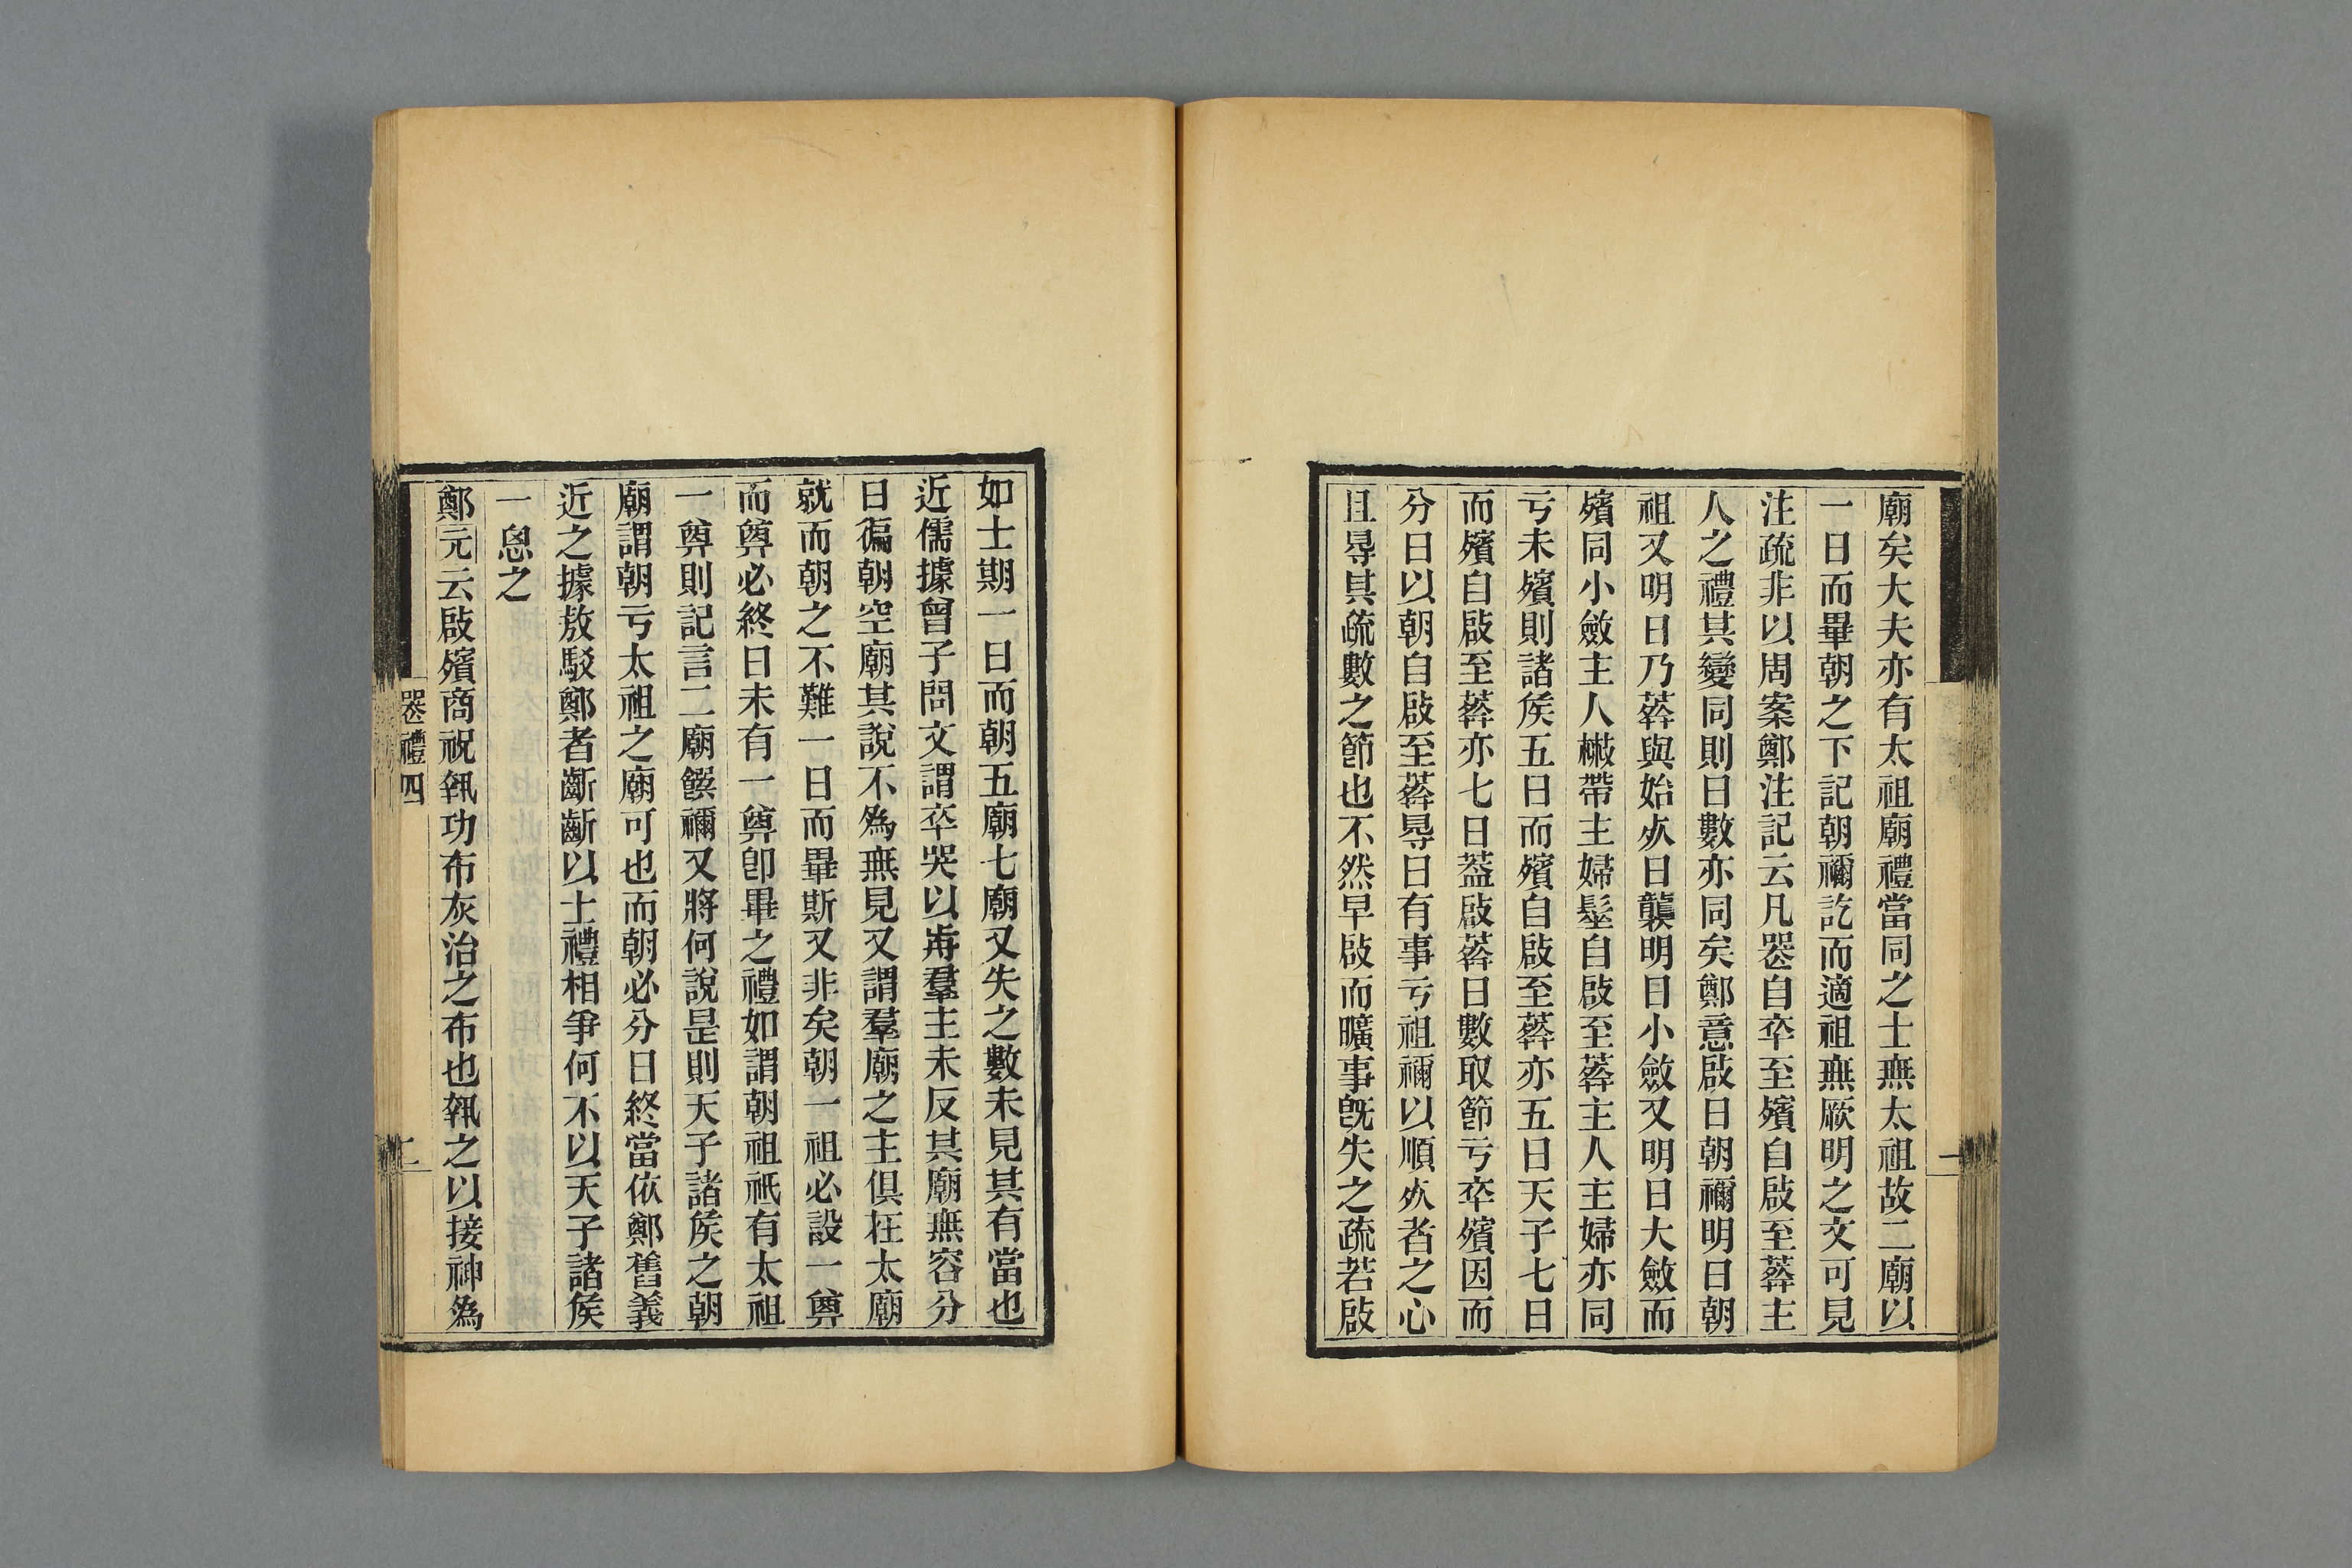 廟矣大夫亦有太祖廟禮當同之士無太祖故二廟以
一日而畢朝之下記朝禰訖而適祖無厥明之文可見
注疏非以周案鄭注記云凡喪自卒至殯自啟至葬主
人之禮其變同則日數亦同矣鄭意啟日朝禰明日朝
祖又明日乃葬與始死日襲明日小斂又明日大斂而
殯同小斂主人散帶主婦髽自啟至葬主人主婦亦同
亏未殯則諸矦五日而殯自啟至葬亦五日天子七日
而殯自啟至葬亦七日葢啟葬日數取節亏卒殯因而
分日以朝自啟至葬㝵日有事亏祖禰以順死者之心
且㝵其疏數之節也不然早啟而曠事旣失之疏若啟
如士期一日而朝五廟七廟又失之數未見其有當也
近儒據曾子問文謂卒哭以歬羣主未反其廟無容分
日徧朝空廟其說不為無見又謂羣廟之主俱在太廟
就而朝之不難一日而畢斯又非矣朝一祖必設一奠
而奠必終日未有一奠卽畢之禮如謂朝祖祗有太祖
一奠則記言二廟饌禰又將何說是則天子諸矦之朝
廟謂朝亏太祖之廟可也而朝必分日終當依鄭舊義
近之據敖駁鄭者齗齗以士禮相爭何不以天子諸矦
一恖之
鄭元云啟殯商祝執功布灰治之布也執之以接神為
喪禮四
二
一